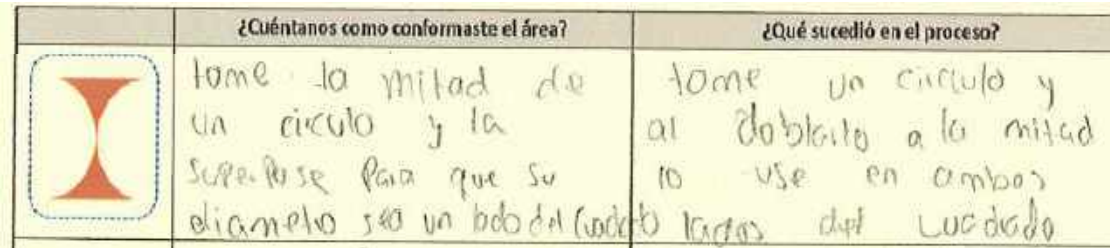 ¿Cuéntanos como conformaste el área?
¿Qué sucedió en el proceso?
tome la mitad de
un circulo y la
superpuse para que su
diametro sea un lado del cuadrado
tome un circulo y
al doblarlo a la mitad
lo use en ambos
lados del cuadrado